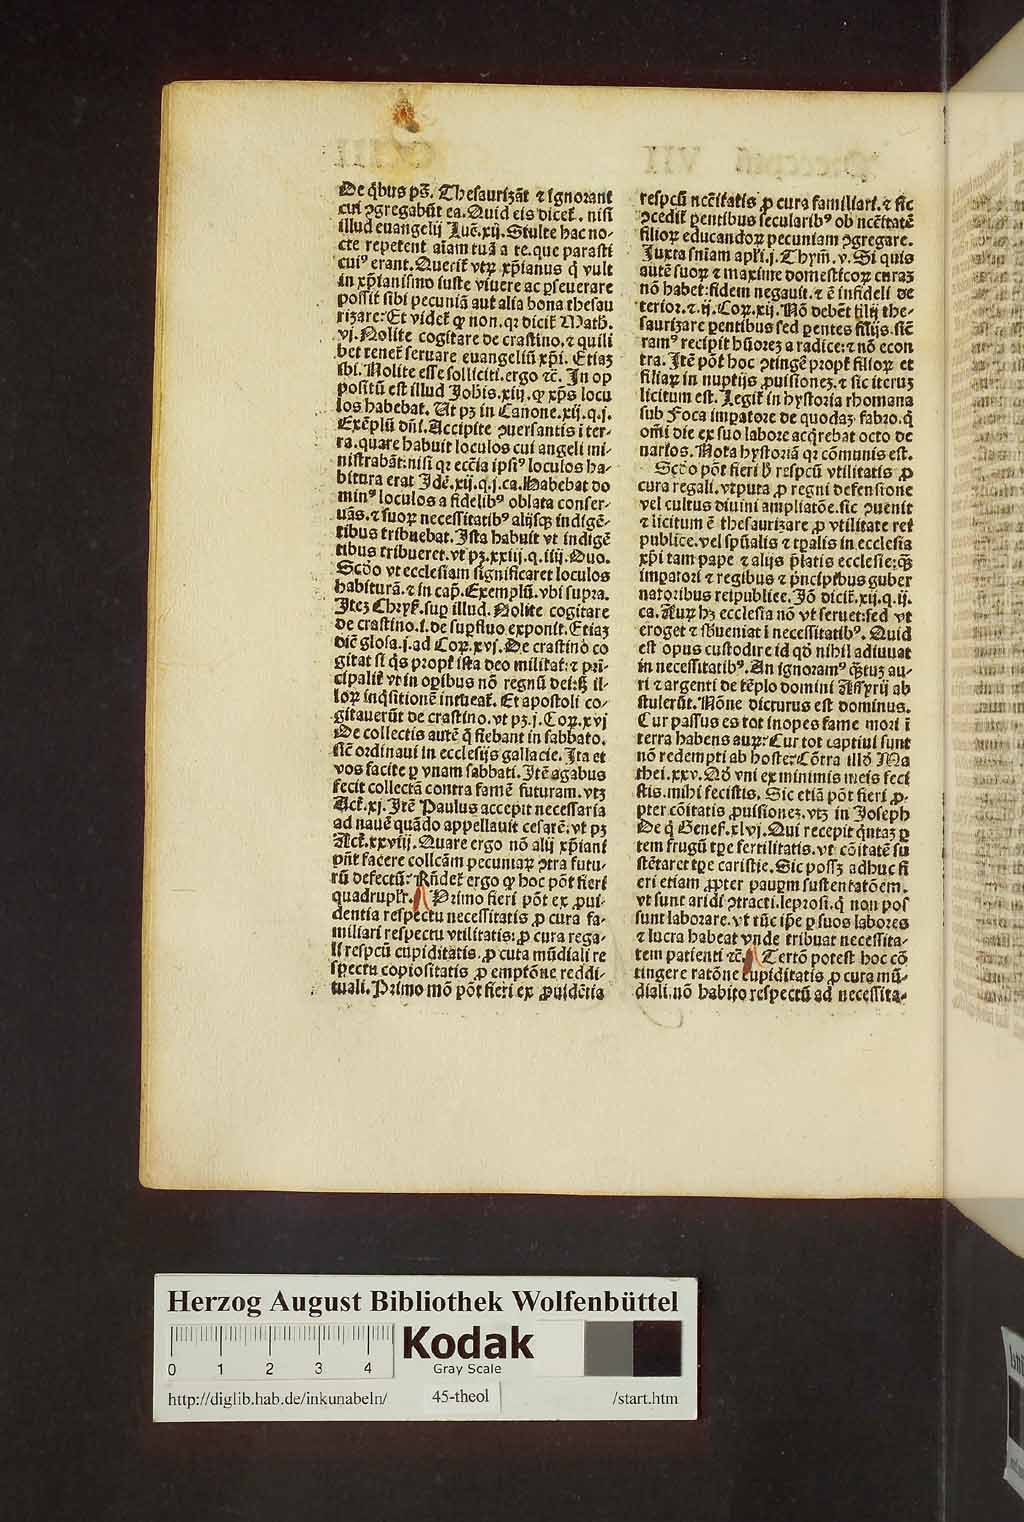 De q̇bus pš. Theſaurizãt ⁊ ignorant
cui ꝯgregabũt ea. Quid eis dicet̃. niſi
illud euangelij Luč.xij. Stulte hac no-
cte repetent aĩam tuã a te. que paraſti
cuiꝰ erant. Querit̃ vtꝝ xp̃ianus q̇ vult
in xp̃ianiſmo iuſte viuere ac ꝑſeuerare
poſſit ſibi pecuniã aut alia bona theſau
rizare: Et videt̃ ꝙ non. qꝛ dicit̃ Math̃.
vj. Nolite cogitare de craſtino. ⁊ quili
bet tenet̃ ſeruare euangeliũ xp̃i. Etiaꝫ
ibi. Nolite eſſe ſolliciti. ergo ⁊č. In op
poſitũ eſt illud Joh̃is.xiij. ꝙ xp̃s locu
los habebat. Ut pꝫ in Canone.xij.q.j.
Exẽplũ dñi. Accipite ꝯuerſantis ĩ ter-
ra. quare habuit loculos cui angeli mi-
niſtrabãt: niſi qꝛ ecc̃ia ipſiꝰ loculos ha-
bitura erat Idẽ.xij.q.j.ca. Habebat do
minꝰ loculos a fidelibꝰ oblata conſer-
uãs. ⁊ ſuoꝝ neceſſitatibꝰ alijſqꝫ indigẽ-
tibus tribuebat. Iſta habuit vt indigẽ
tibus tribueret. vt pꝫ.xxiij.q.iiij. Duo.
Sc̃do vt eccleſiam ſignificaret loculos
habiturã. ⁊ in cap̃. Exemplũ. vbi ſupra.
Iteꝫ Chryſ. ſuꝑ illud. Nolite cogitare
de craſtino. i. de ſuꝑfluo exponit. Etiaꝫ
dic̃ gloſa.j.ad Coꝝ.xvj. De craſtino co
gitat ſi q̇s propt̃ iſta deo militat: ⁊ pri-
cipalit̃ vt in oꝑibus nõ regnũ dei: ſꝫ il-
loꝝ inq̇ſitionẽ intueat̃. Et apoſtoli co-
gitauerũt de craſtino. vt pꝫ.j.Coꝝ.xvj
De collectis autẽ q̄ fiebant in ſabbato.
ſic̃ ordinaui in eccleſijs gallacie. Ita et
vos facite ꝑ vnam ſabbati. Itẽ agabus
fecit collectã contra famẽ futuram. vtꝫ
Act̃.xj. Itẽ Paulus accepit neceſſaria
ad nauẽ quãdo appellauit ceſarẽ. vt pꝫ
Act̃.xxviij. Quare ergo nõ alij xp̃iani
pn̄t facere collc̃am pecuniaꝝ ꝯtra futu-
rũ defectũ: Rñdet̃ ergo ꝙ hoc põt fieri
quadruplr̃. Primo fieri põt ex ꝓui-
dentia reſpectu neceſſitatis ꝓ cura fa-
miliari reſpectu vtilitatis: ꝓ cura rega-
li reſpcũ cupiditatis. ꝓ cura mũdiali re
ſpectu copioſitatis ꝓ emptõne reddi-
tuali. Primo mõ põt fieri ex ꝓuidẽtia
reſpcũ nc̃eſſitatis ꝓ cura familiari. ⁊ ſic
ꝯcedit̃ ꝑentibus ſecularibꝰ ob nc̃eſſitatẽ
filioꝝ educandoꝝ pecuniam ꝯgregare.
Juxta ſniam apl̃i.j.Thym̃.v. Si quis
autẽ ſuoꝝ ⁊ maxime domeſticoꝝ curaꝫ
nõ habet: fidem negauit. ⁊ ẽ infideli de
terior. ⁊.ij.Coꝝ.xij. Nõ debẽt filij the-
ſaurizare ꝑentibus ſed ꝑentes filijs. ſic̃
ramꝰ recipit hũoreꝫ a radice: ⁊ nõ econ
tra. Itẽ põt hoc ꝯtingẽ propt̃ filioꝝ et
filiaꝝ in nuptijs ꝓuiſioneꝫ. ⁊ ſic iteruꝫ
licitum eſt. Legit̃ in hyſtoria rhomana
ſub Foca imꝑatore de quodaꝫ fabro. q̇
om̃i die ex ſuo labore acq̇rebat octo de
narios. Nota hyſtoriã qꝛ cõmunis eſt.
Sc̃do põt fieri h̃ reſpcũ vtilitatis ꝓ
cura regali. vtputa ꝓ regni defenſione
vel cultus diuini ampliatõe. ſic ꝯuenit
⁊ licitum ẽ theſaurizare ꝓ vtilitate rei
publice. vel ſpũalis ⁊ tꝑalis in eccleſia
xp̃i tam pape ⁊ alijs p̃latis eccleſie: qꝫ
imꝑatori ⁊ regibus ⁊ p̃ncipibus guber
natoribus reipublice. Iõ dicit̃.xij.q.ij.
ca. Auꝝ hꝫ eccleſia nõ vt ſeruet: ſed vt
eroget ⁊ ſb̃ueniat ĩ neceſſitatibꝰ. Quid
eſt opus cuſtodire id qð nihil adiuuat
in neceſſitatibꝰ. An ignoramꝰ q̃tuꝫ au-
ri ⁊ argenti de tẽplo domini Aſſyrij ab
ſtulerũt. Nõne dicturus eſt dominus.
Cur paſſus es tot inopes fame mori ĩ
terra habens auꝝ: Cur tot captiui ſunt
nõ redempti ab hoſte: Cõtra illð Ma
thei.xxv. Qð vni ex minimis meis feci
ſtis. mihi feciſtis. Sic etiã põt fieri ꝓ-
pter cõitatis ꝓuiſioneꝫ. vtꝫ in Joſeph
De q̇ Geneſ.xlvj. Qui recepit q̇ntaꝫ ꝑ
tem frugũ tꝑe fertilitatis. vt cõitatẽ ſu
ſtẽtaret tꝑe cariſtie. Sic poſſꝫ adhuc fi
eri etiam ꝓpter pauꝑm ſuſtentatõem.
vt ſunt aridi ꝯtracti. leproſi. q̇ non poſ
ſunt laborare. vt tũc ip̃e ꝑ ſuos labores
⁊ lucra habeat vnde tribuat neceſſita-
tem patienti ⁊č. Tertõ poteſt hoc cõ
tingere ratõne cupiditatis ꝓ cura mũ-
diali. nõ habito reſpectũ ad neceſſita-
Herzog August Bibliothek Wolfenbüttel
0 1 2 3 4
Kodak
Gray Scale
http://diglib.hab.de/inkunabeln/ 45-theol /start.htm